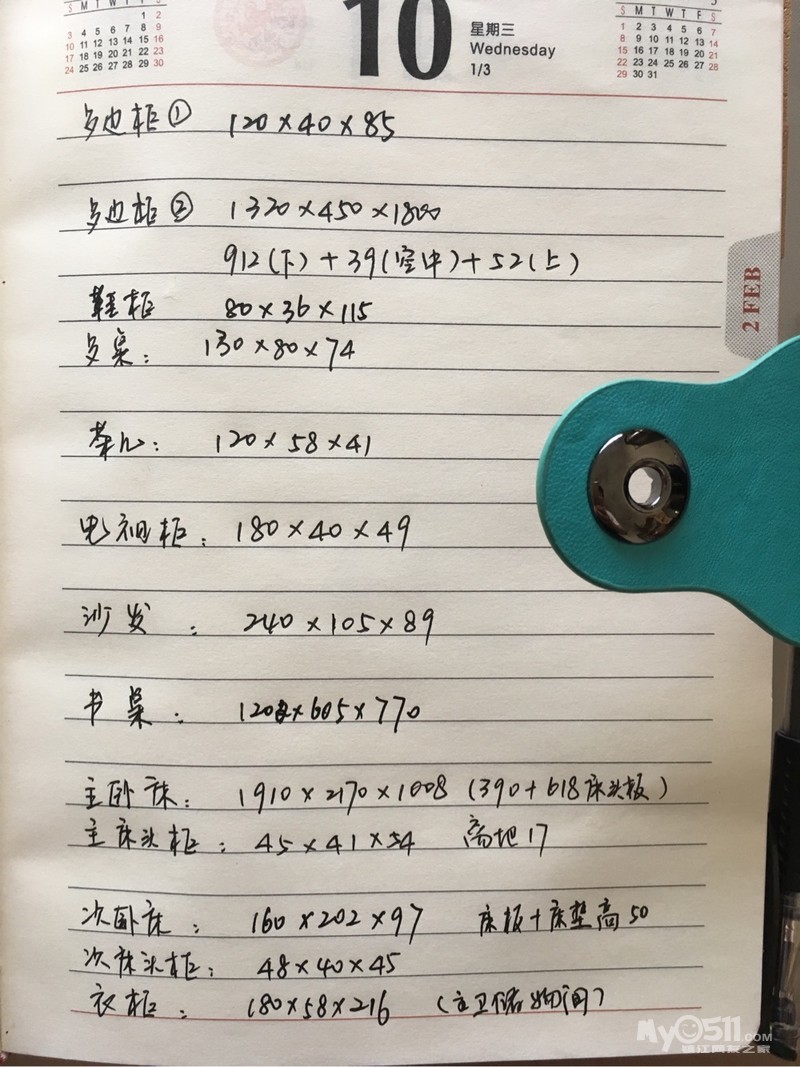 S M T W T F S
1 2
3 4 5 6 7 8 9
10 11 12 13 14 15 16
17 18 19 20 21 22 23
24 25 26 27 28 29 30
10
星期三
Wednesday
1/3
S M T W T F S
1 2 3 4 5 6 7
8 9 10 11 12 13 14
15 16 17 18 19 20 21
22 23 24 25 26 27 28
29 30 31
歺边柜① 120×40×85
歺边柜② 1320×450×1800
912(下)+39(空中)+52(上)
鞋柜 80×36×115
歺桌: 130×80×74
茶几: 120×58×41
电视柜: 180×40×49
沙发: 240×105×89
书桌: 1202×605×770
主卧床: 1910×2170×1008 (390+618床头板)
主床头柜: 45×41×54 离地17
次卧床: 160×202×97 床板+床垫高50
次床头柜: 48×40×45
衣柜: 180×58×216 (主卫储物间)
2 FEB
My0511.COM
镇江网友之家